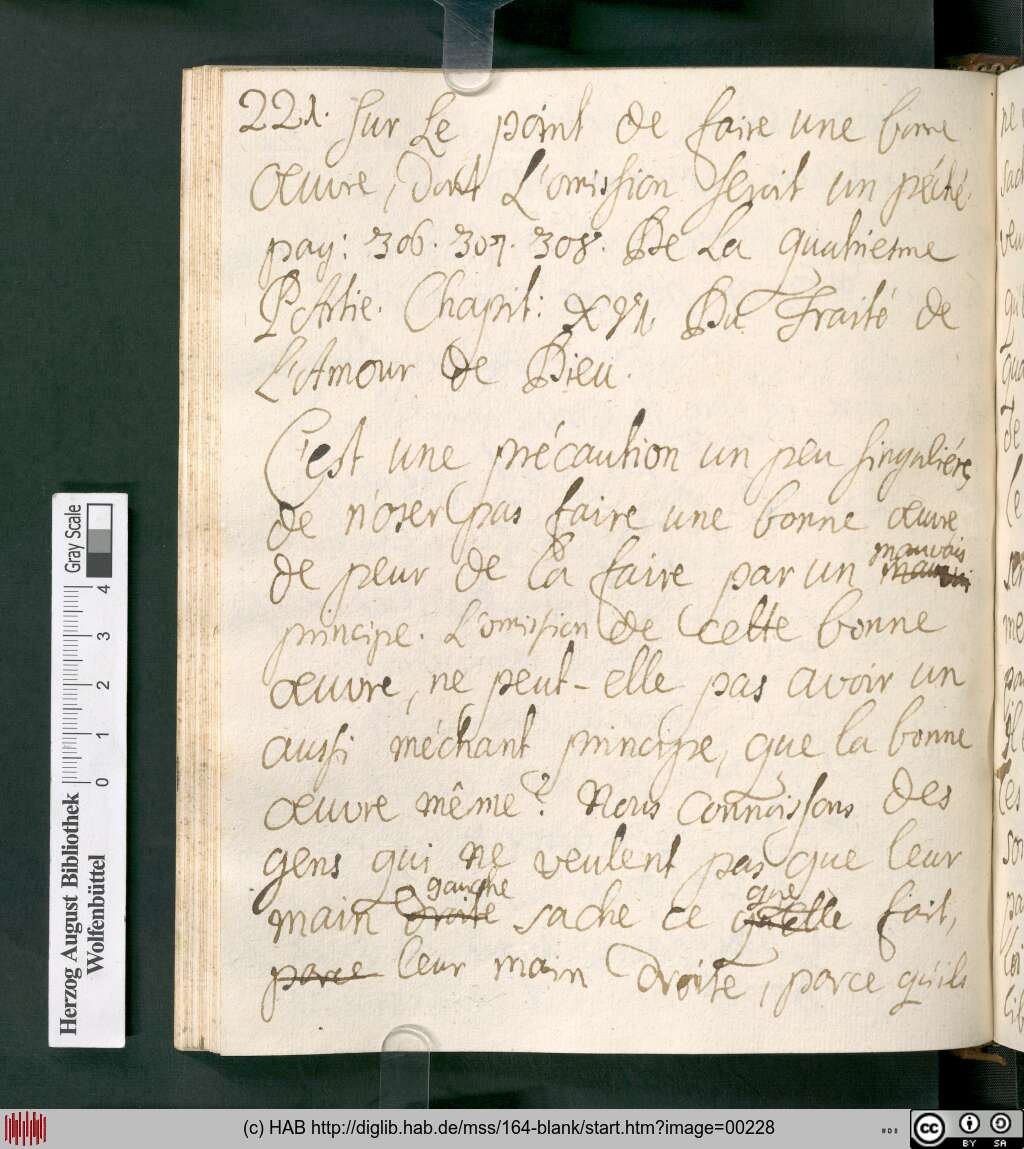 221. Sur Le point de faire une bonne
œuvre, dont L'omission seroit un péché.
pag: 306. 307. 308. De La quatriesme
Partie. Chapit: XVI. Du Traité de
L'Amour de Dieu.
C'est une précaution un peu singulière,
de n'oser pas faire une bonne œuvre
de peur de la faire par un mauvais
principe. L'omission de cette bonne
œuvre, ne peut-elle pas avoir un
aussi méchant principe, que la bonne
œuvre même? Nous connoissons des
gens qui ne veulent pas que leur
gauche que
main droite sache ce qu'elle fait,
parce leur main droite, parce qu'ils
Gray Scale
0 1 2 3 4
Herzog August Bibliothek
Wolfenbüttel
(c) HAB http://diglib.hab.de/mss/164-blank/start.htm?image=00228
cc BY SA